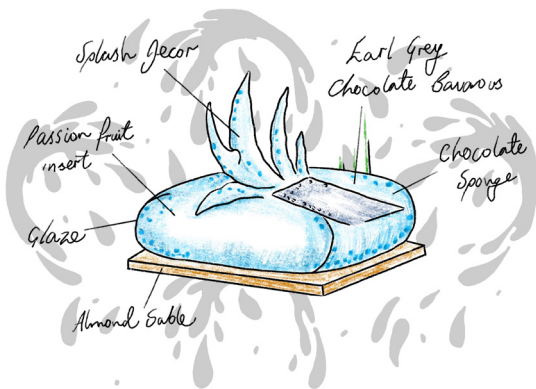 Splash Decor
Earl Grey
Chocolate Bavarous
Passion fruit
insert
Chocolate
Sponge
Glaze
Almond Sable